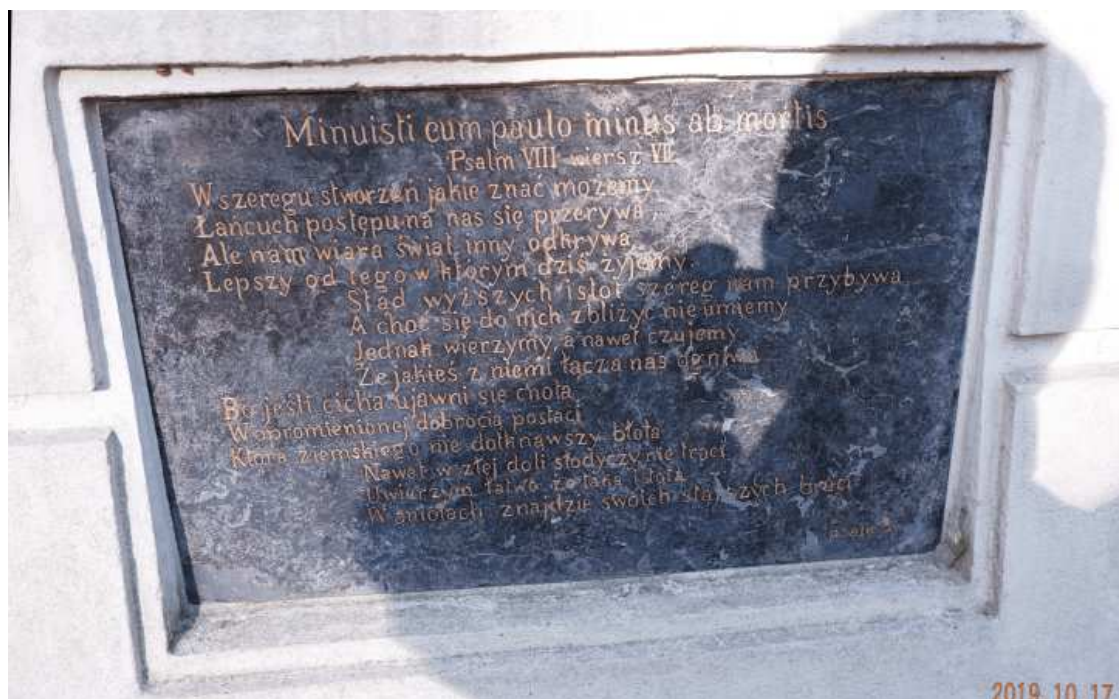 Minuisti eum paulo minus ab mortis
Psalm VIII wiersz VII
W szeregu stworzeń jakie znać możemy
Łańcuch postępu na nas się przerywa,
Ale nam wiara świat inny odkrywa
Lepszy od tego w którym dziś żyjemy.
Stąd wyższych istot szereg nam przybywa
A choć się do nich zbliżyć nie umiemy
Jednak wierzymy, a nawet czujemy
Że jakieś z niemi łączą nas ogniwa
Bo jeśli cicha ujawni się cnota
W opromienionej dobrocią postaci
Która ziemskiego nie dotknąwszy błota
Nawet w złej doli słodyczy nie traci
Uwierzym łatwo że taka istota
W aniołach znajdzie swoich starszych braci
2019 10 17